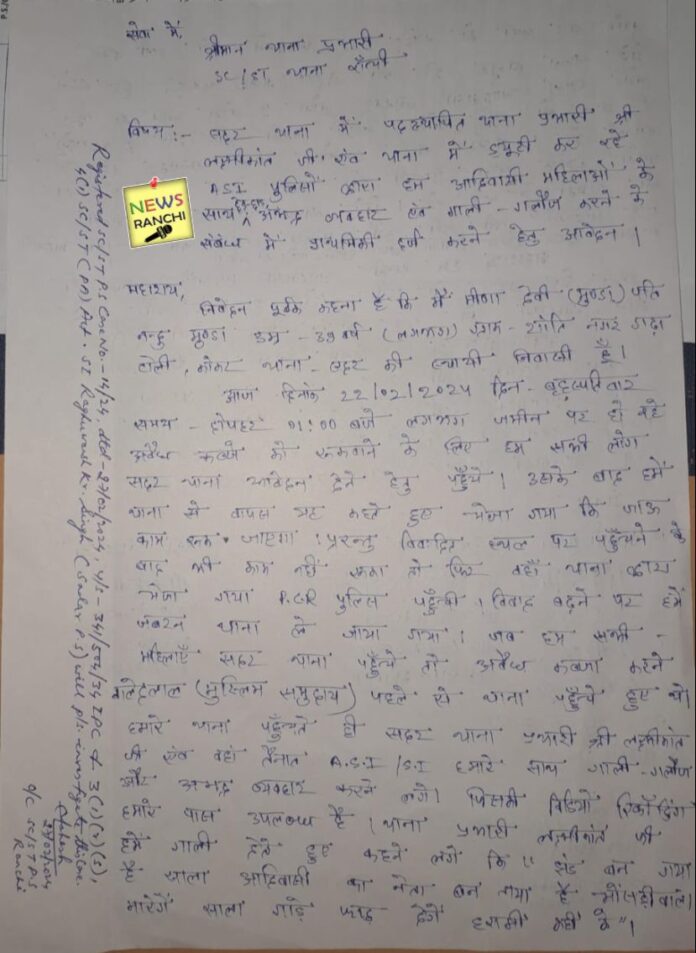 सेवा में,
श्रीमान थाना प्रभारी
SC/ST थाना राँची
विषय :- सदर थाना में पदस्थापित थाना प्रभारी श्री
लक्ष्मीकांत जी एवं थाना में ड्यूटी कर रहे
A.S.I पुलिसों द्वारा हम आदिवासी महिलाओं के
साथ अभद्र व्यवहार एवं गाली-गलौज करने के
संबंध में प्राथमिकी दर्ज करने हेतु आवेदन।
NEWS
RANCHI
महाशय,
निवेदन पूर्वक कहना है कि मैं मीणा देवी (मुण्डा) पति
मुण्डा उम्र - 39 वर्ष (लगभग) ग्राम - शांति नगर गाढ़ा
टोली, कोकर थाना - सदर की स्थायी निवासी हूँ।
आज दिनांक 22/02/2024 दिन - बृहस्पतिवार
समय - दोपहर 01:00 बजे लगभग जमीन पर हो रहे
अवैध कब्जे को रूकवाने के लिए हम सभी लोग
सदर थाना आवेदन देने हेतु पहुँचे। उसके बाद हमें
थाना से वापस यह कहते हुए भेजा गया कि जाऊ
काम रूक जाएगा। परन्तु विवादित स्थल पर पहुँचने के
बाद भी काम नहीं रूका तो फिर वहाँ थाना द्वारा
भेजा गया P.C.R पुलिस पहुँची। विवाद बढ़ने पर हमें
जबरन थाना ले जाया गया। जब हम सभी -
महिलाएँ सदर थाना पहुँचे तो अवैध कब्जा करने
(मुस्लिम समुदाय) पहले से थाना पहुँचे हुए थे।
हमारे थाना पहुँचते ही सदर थाना प्रभारी श्री लक्ष्मीकांत
जी एवं वहां तैनात A.S.I/S.I हमारे साथ गाली-गलौज
और अभद्र व्यवहार करने लगे। जिसकी विडियो रिकॉर्डिंग
हमारे पास उपलब्ध है। थाना प्रभारी लक्ष्मीकांत जी
हमें गाली देते हुए कहने लगे कि "संड बन गया
है साला आदिवासी का नेता बन गया है
मारेंगे साला गाड़े फाड़ देंगे हरामी कहीं के"।
Registered SC/ST PS Case No.-14/24, dtd-27/02/2024, u/s-341/504/34 IPC & 3(1)(r)(s),
SC/ST (PA) Act. SI Raghuvansh Kr. Singh (Sadar P.S) will pls. investigate this case
27/02/2024
O/C SC/ST P.S
Ranchi